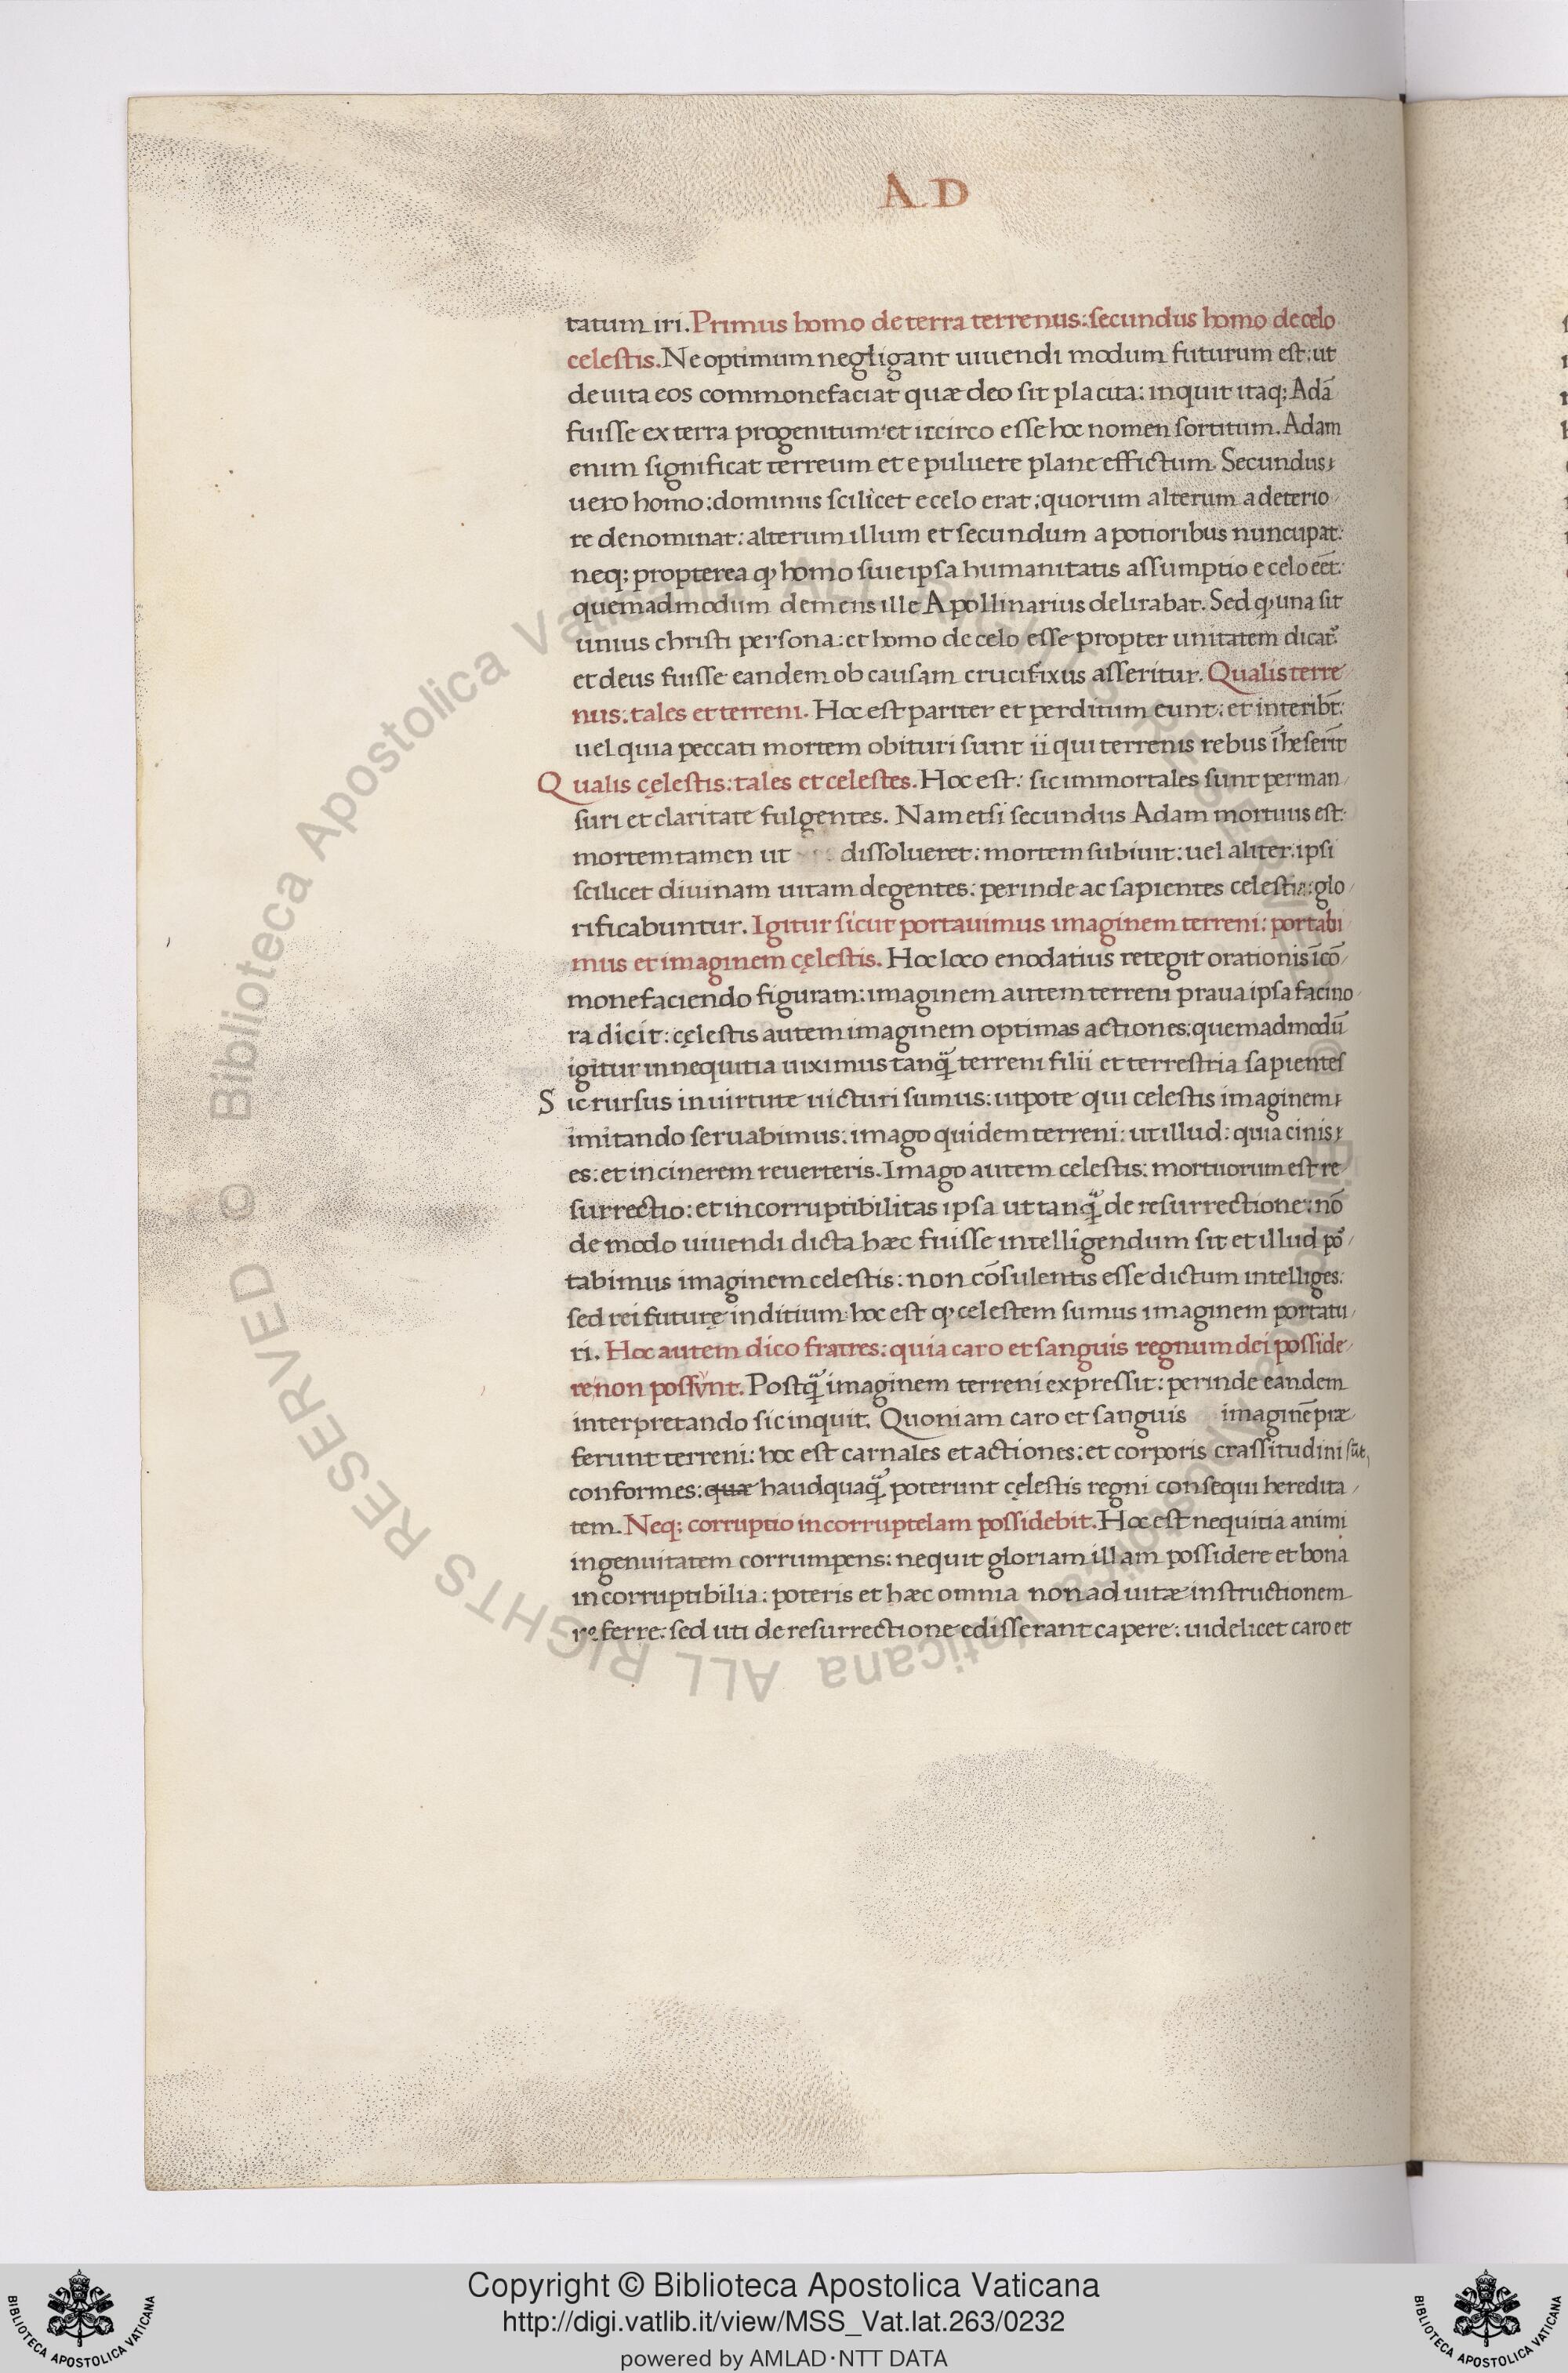 A.D
tatum iri. Primus homo de terra terrenus: secundus homo de celo
celestis. Ne optimum negligant uiuendi modum futurum est: ut
de uita eos commonefaciat quæ deo sit placita: inquit itaq; Adā
fuisse ex terra progenitum: et itcirco esse hoc nomen sortitum. Adam
enim significat terreum et e puluere plane effictum. Secundus
uero homo: dominus scilicet e celo erat: quorum alterum a deterio
re denominat: alterum illum et secundum a potioribus nuncupat:
neq; propterea ꝙ homo siue ipsa humanitatis assumptio e celo eēt:
quemadmodum demens ille Apollinarius delirabat. Sed ꝙ una sit
unius christi persona: et homo de celo esse propter unitatem dicat᷑:
et deus fuisse eandem ob causam crucifixus asseritur. Qualis terre
nus: tales et terreni. Hoc est pariter et perditum eunt: et interibt̄:
uel quia peccati mortem obituri sunt ii qui terrenis rebus īheserīt
Qualis cęlestis: tales et celestes. Hoc est: sic immortales sunt perman
suri et claritate fulgentes. Nam etsi secundus Adam mortuus est:
mortem tamen ut dissolueret: mortem subiuit: uel aliter: ipsi
scilicet diuinam uitam degentes: perinde ac sapientes celestia: glo
rificabuntur. Igitur sicut portauimus imaginem terreni: portabi
mus et imaginem cęlestis. Hoc loco enodatius retegit orationis īcō
monefaciendo figuram: imaginem autem terreni praua ipsa facino
ra dicit: cęlestis autem imaginem optimas actiones: quemadmodū
igitur in nequitia uiximus tanq̃ terreni filii et terrestria sapientes
Sic rursus in uirtute uicturi sumus: utpote qui celestis imaginem
imitando seruabimus: imago quidem terreni: ut illud: quia cinis
es: et in cinerem reuerteris. Imago autem celestis: mortuorum est re
surrectio: et incorruptibilitas ipsa ut tanq̃ de resurrectione: nō
de modo uiuendi dicta hæc fuisse intelligendum sit et illud po᷑
tabimus imaginem celestis: non cōsulentis esse dictum intelliges:
sed rei futurę inditium hoc est ꝙ celestem sumus imaginem portatu
ri. Hoc autem dico fratres: quia caro et sanguis regnum dei posside
re non possunt. Postq̃ imaginem terreni expressit: perinde eandem
interpretando sic inquit. Quoniam caro et sanguis imaginē præ
ferunt terreni: hoc est carnales et actiones: et corporis crassitudini sūt
conformes: quæ haudquaq̃ poterunt cęlestis regni consequi heredita
tem. Neq; corruptio incorruptelam possidebit. Hoc est nequitia animi
ingenuitatem corrumpens: nequit gloriam illam possidere et bona
incorruptibilia: poteris et hæc omnia non ad uitæ instructionem
referre: sed uti de resurrectione edisserant capere: uidelicet caro et
Copyright © Biblioteca Apostolica Vaticana
http://digi.vatlib.it/view/MSS_Vat.lat.263/0232
powered by AMLAD·NTT DATA